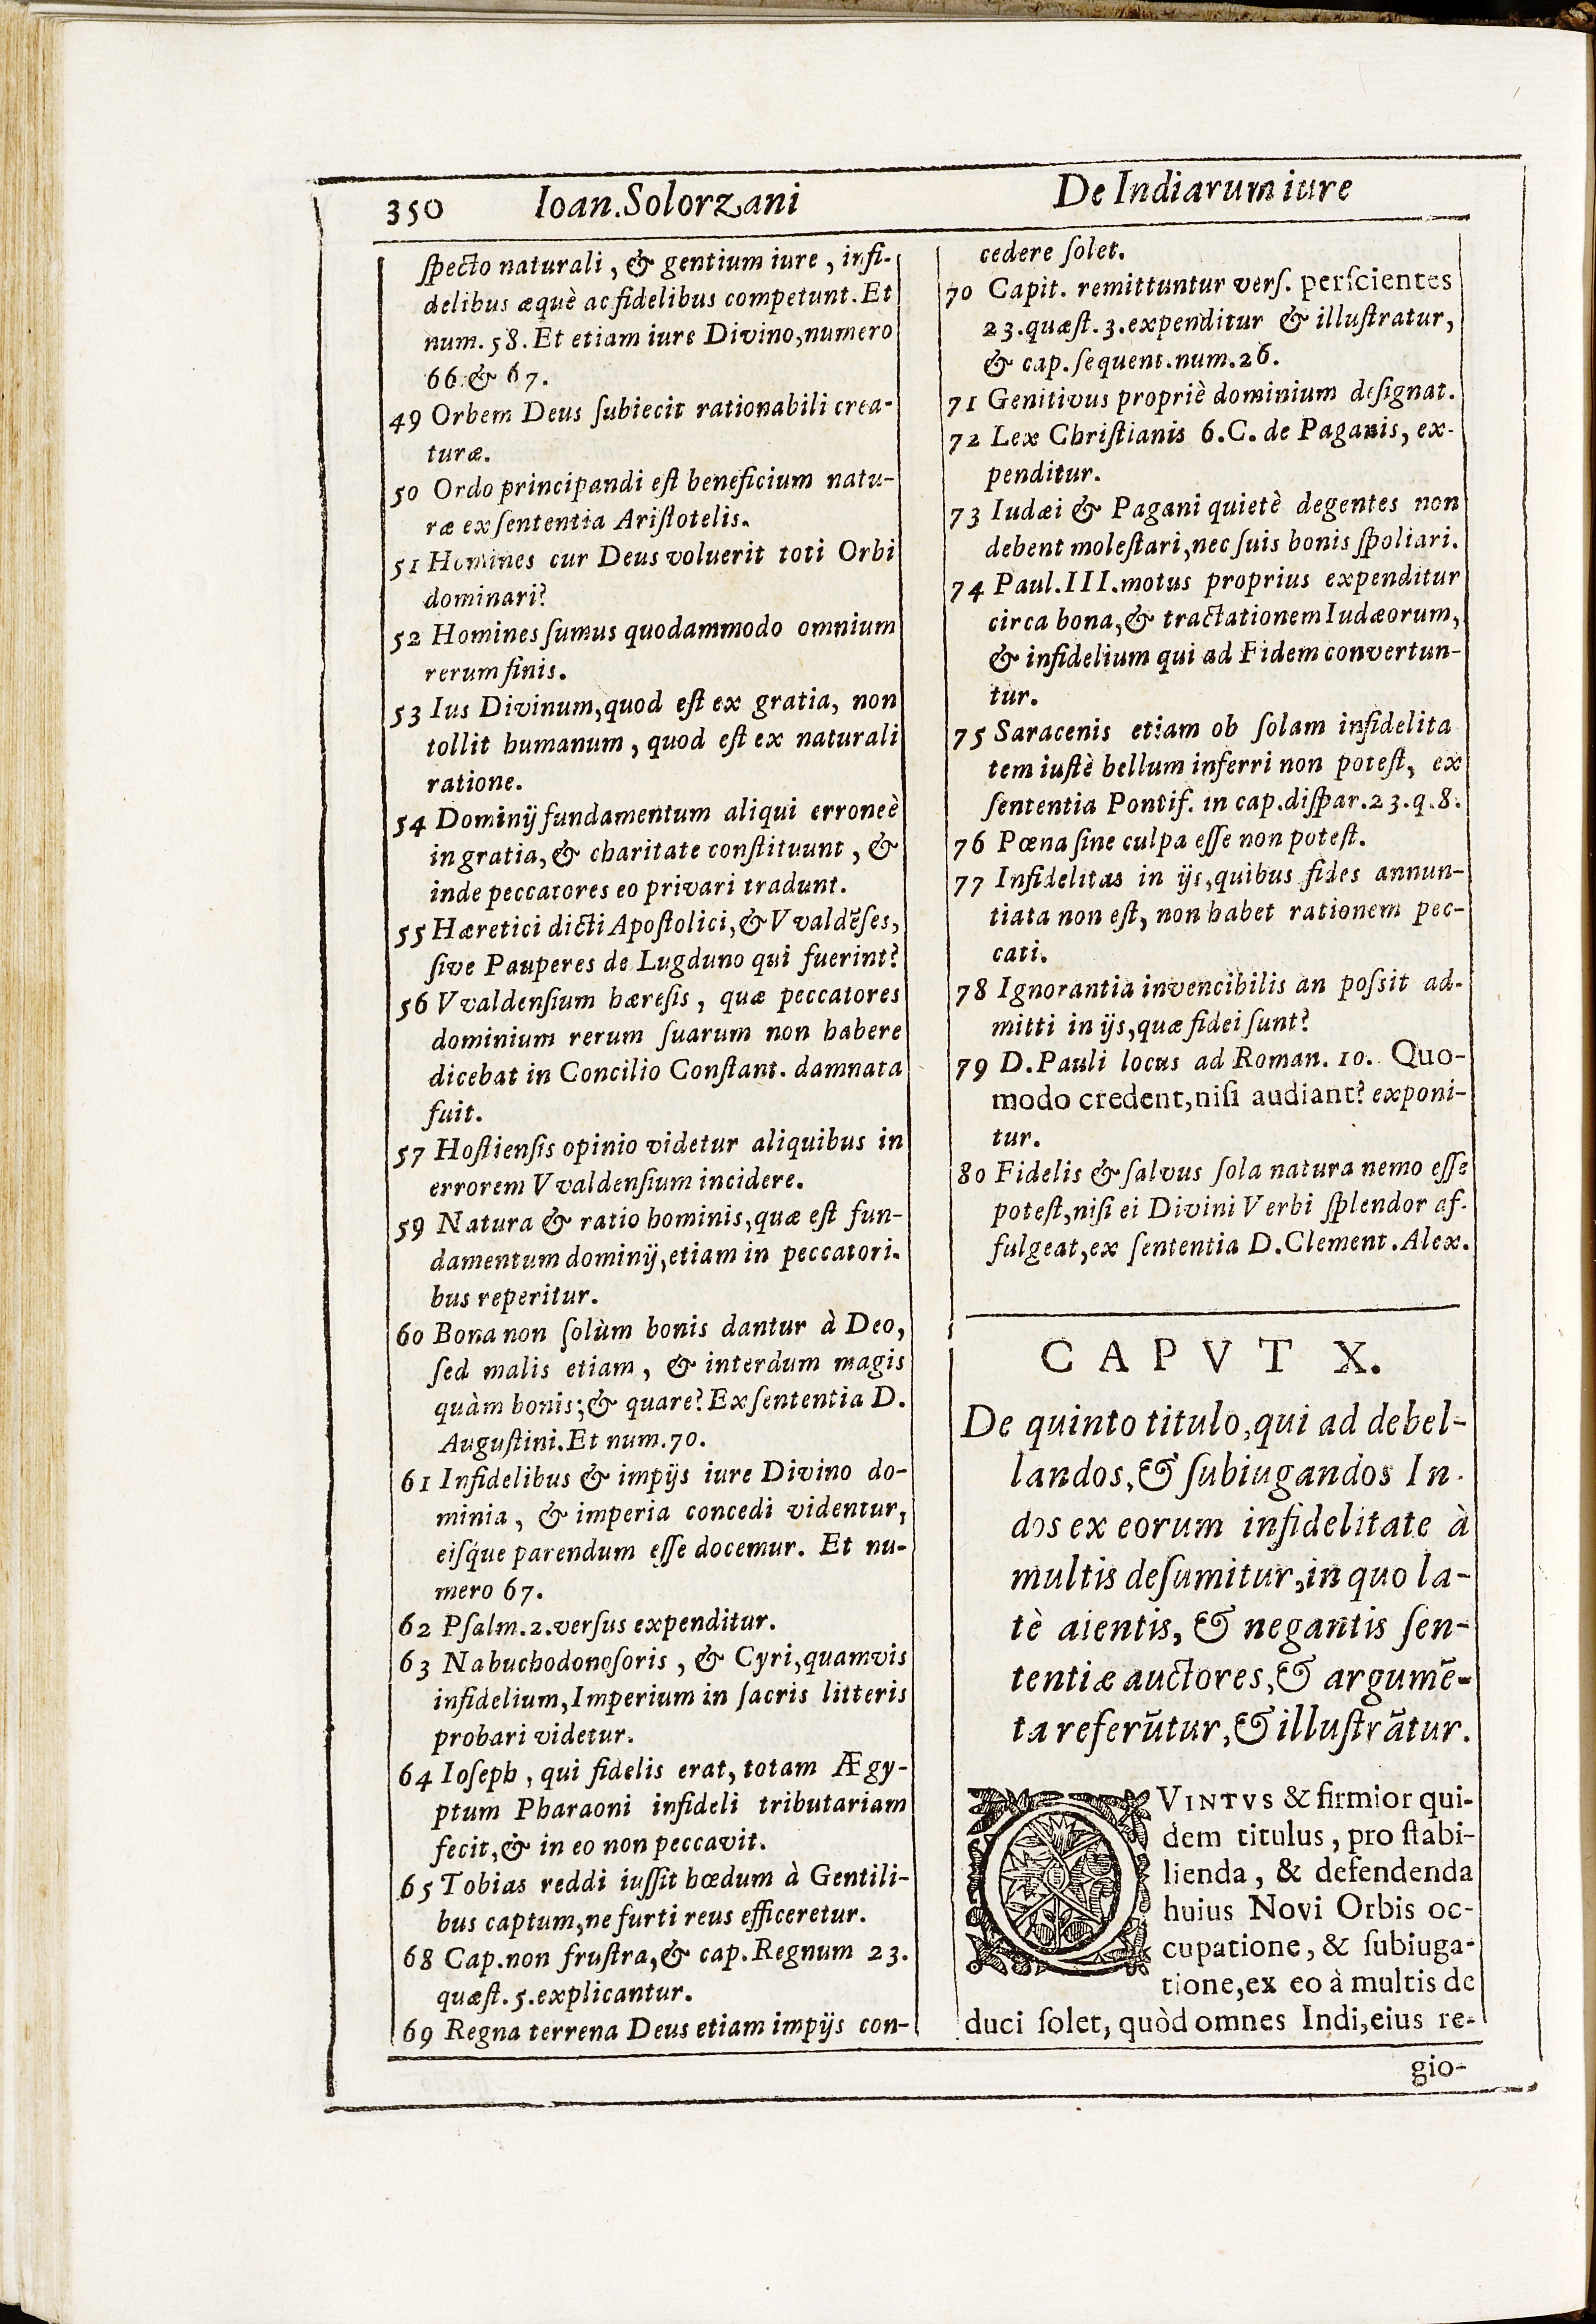 350 Ioan.Solorzani De Indiarum iure
ſpecto naturali, & gentium iure, infi-
delibus æquè ac fidelibus competunt. Et
num. 58. Et etiam iure Divino, numero
66. & 67.
49 Orbem Deus ſubiecit rationabili crea-
turæ.
50 Ordo principandi eſt beneficium natu-
ræ ex ſententia Ariſtotelis.
51 Homines cur Deus voluerit toti Orbi
dominari?
52 Homines ſumus quodammodo omnium
rerum finis.
53 Ius Divinum, quod eſt ex gratia, non
tollit humanum, quod eſt ex naturali
ratione.
54 Dominij fundamentum aliqui erroneè
in gratia, & charitate conſtituunt, &
inde peccatores eo privari tradunt.
55 Hæretici dicti Apoſtolici, & Vvaldẽſes,
ſive Pauperes de Lugduno qui fuerint?
56 Vvaldenſium hæreſis, quæ peccatores
dominium rerum ſuarum non habere
dicebat in Concilio Conſtant. damnata
fuit.
57 Hoſtienſis opinio videtur aliquibus in
errorem Vvaldenſium incidere.
59 Natura & ratio hominis, quæ eſt fun-
damentum dominij, etiam in peccatori-
bus reperitur.
60 Bona non ſolùm bonis dantur à Deo,
ſed malis etiam, & interdum magis
quàm bonis; & quare? Ex ſententia D.
Auguſtini. Et num. 70.
61 Infidelibus & impijs iure Divino do-
minia, & imperia concedi videntur,
eiſq́ue parendum eſſe docemur. Et nu-
mero 67.
62 Pſalm. 2. verſus expenditur.
63 Nabuchodonoſoris, & Cyri, quamvis
infidelium, Imperium in ſacris litteris
probari videtur.
64 Ioſeph, qui fidelis erat, totam Ægy-
ptum Pharaoni infideli tributariam
fecit, & in eo non peccavit.
65 Tobias reddi iuſſit hœdum à Gentili-
bus captum, ne furti reus efficeretur.
68 Cap. non fruſtra, & cap. Regnum 23.
quæſt. 5. explicantur.
69 Regna terrena Deus etiam impijs con-
cedere ſolet.
70 Capit. remittuntur verſ. perſcientes
23. quæſt. 3. expenditur & illuſtratur,
& cap. ſequent. num. 26.
71 Genitivus propriè dominium deſignat.
72 Lex Chriſtianis 6. C. de Paganis, ex-
penditur.
73 Iudæi & Pagani quietè degentes non
debent moleſtari, nec ſuis bonis ſpoliari.
74 Paul. III. motus proprius expenditur
circa bona, & tractationem Iudæorum,
& infidelium qui ad Fidem convertun-
tur.
75 Saracenis etiam ob ſolam infidelita
tem iuſtè bellum inferri non poteſt, ex
ſententia Pontif. in cap. diſpar. 23. q. 8.
76 Pœna ſine culpa eſſe non poteſt.
77 Infidelitas in ijs, quibus fides annun-
tiata non eſt, non habet rationem pec-
cati.
78 Ignorantia invencibilis an poſsit ad-
mitti in ijs, quæ fidei ſunt?
79 D. Pauli locus ad Roman. 10. Quo-
modo credent, niſi audiant? exponi-
tur.
80 Fidelis & ſalvus ſola natura nemo eſſe
poteſt, niſi ei Divini Verbi ſplendor af-
fulgeat, ex ſententia D. Clement. Alex.
CAPVT X.
De quinto titulo, qui ad debel-
landos, & ſubiugandos In-
dos ex eorum infidelitate à
multis deſumitur, in quo la-
tè aientis, & negantis ſen-
tentiæ auctores, & argumẽ-
ta referũtur, & illuſtrãtur.
QVINTVS & firmior qui-
dem titulus, pro ſtabi-
lienda, & defendenda
huius Novi Orbis oc-
cupatione, & ſubiuga-
tione, ex eo à multis de
duci ſolet, quòd omnes Indi, eius re-
gio-